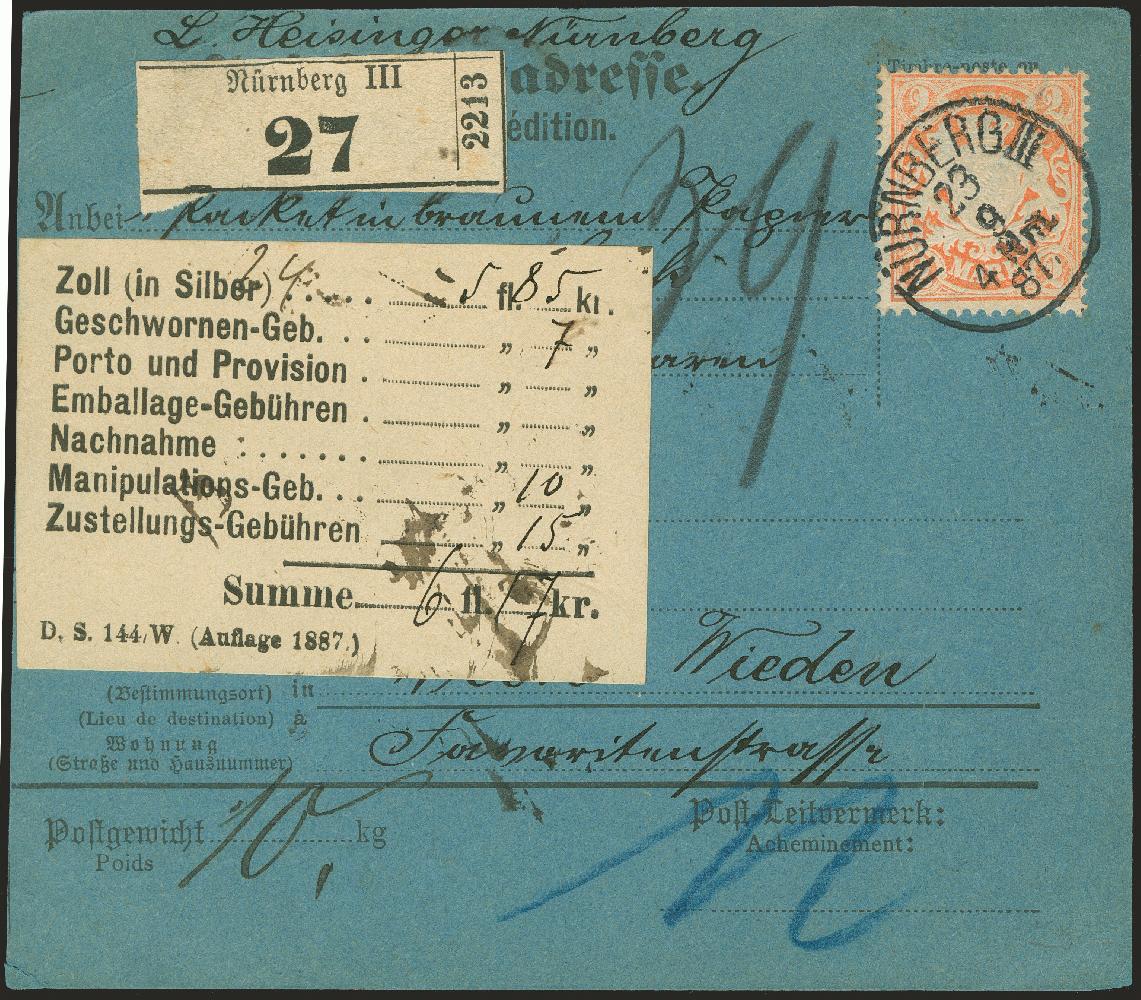 L. Heisinger Nürnberg
adresse.
édition.
Nürnberg III
27
2213
2 2
MARK
NÜRNBERG III
23
SEP
87.
Anbei 1 Packet in braunem Papier
24
Zoll (in Silber) . . . . 5 fl. 85 kr.
Geschwornen-Geb. . . „ 7 „
Porto und Provision . „ „
waren
Emballage-Gebühren . „ „
Nachnahme : . . . . . . . „ „
Manipulations-Geb. . . „ 10 „
Zustellungs-Gebühren „ 15 „
Summe 6 fl. 17 kr.
D. S. 144/W. (Auflage 1887.)
Wieden
(Bestimmungsort) in
(Lieu de destination) à
Favoritenstrasse
Wohnung
(Straße und Hausnummer)
Postgewicht 10, kg
Poids
Post-Leitvermerk:
Acheminement: